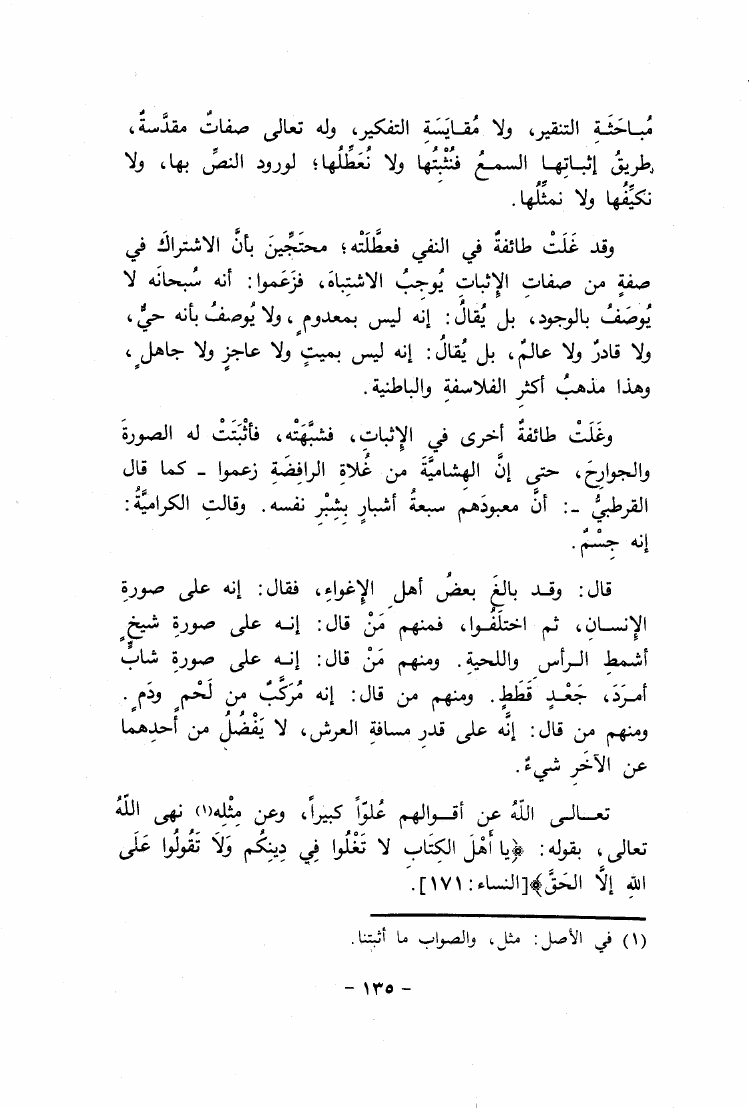 مُبـاحَثَـةِ التنقير، ولا مُقـايَسَـةِ التفكير، وله تعالى صفاتٌ مقدَّسةٌ،
طريقُ إثبـاتِهـا السمـعُ فنُثْبِتُها ولا نُعَطِّلُها؛ لورود النصِّ بها، ولا
نكيِّفُها ولا نمثِّلُها.
وقد غَلَتْ طائفةٌ في النفي فعطَّلَتْه؛ محتَجِّينَ بأنَّ الاشتراكَ في
صفةٍ من صفاتِ الإِثباتِ يُوجِبُ الاشتِباهَ، فزَعَموا: أنه سُبحانَه لا
يُوصَفُ بالوجود، بل يُقالُ: إنه ليس بمعدومٍ، ولا يُوصفُ بأنه حيٌّ،
ولا قادرٌ ولا عالمٌ، بل يُقالُ: إنه ليس بميتٍ ولا عاجزٍ ولا جاهلٍ،
وهذا مذهبُ أكثرِ الفلاسفةِ والباطنية.
وغَلَتْ طائفةٌ أخرى في الإِثباتِ، فشبَّهَتْه، فأثْبَتَتْ له الصورةَ
والجوارحَ، حتى إنَّ الهِشاميَّةَ من غُلاةِ الرافِضَةِ زعموا ـ كما قال
القرطبيُّ ـ: أنَّ معبودَهم سبعةُ أشبارٍ بِشِبْرِ نفسه. وقالتِ الكراميَّةُ:
إنه جِسْمٌ.
قال: وقـد بالغَ بعضُ أهلِ الإِغواءِ، فقال: إنه على صورةِ
الإِنسـانِ، ثم اختلَفُـوا، فمنهم مَنْ قال: إنـه على صورةِ شيخٍ
أشمطِ الـرأسِ واللحيةِ. ومنهم مَنْ قال: إنـه على صورةِ شابٍّ
أمـرَدَ، جَعْـدٍ قَطَطٍ. ومنهم من قال: إنه مُرَكَّبٌ من لَحْمٍ ودَمٍ.
ومنهم من قال: إنَّه على قدرِ مسافةِ العرش، لا يَفْضُلُ من أحدِهما
عن الآخَرِ شيءٌ.
تعـالـى اللّهُ عن أقـوالهم عُلوّاً كبيراً، وعن مِثْلِه(١) نهى اللّهُ
تعالى، بقوله: ﴿يا أهْلَ الكِتَابِ لا تَغْلُوا فِي دِينِكُم وَلَا تَقُولُوا عَلَى
اللهِ إلَّا الحَقَّ﴾[النساء: ١٧١].
(١) في الأصل: مثل، والصواب ما أثبتنا.
- ١٣٥ -